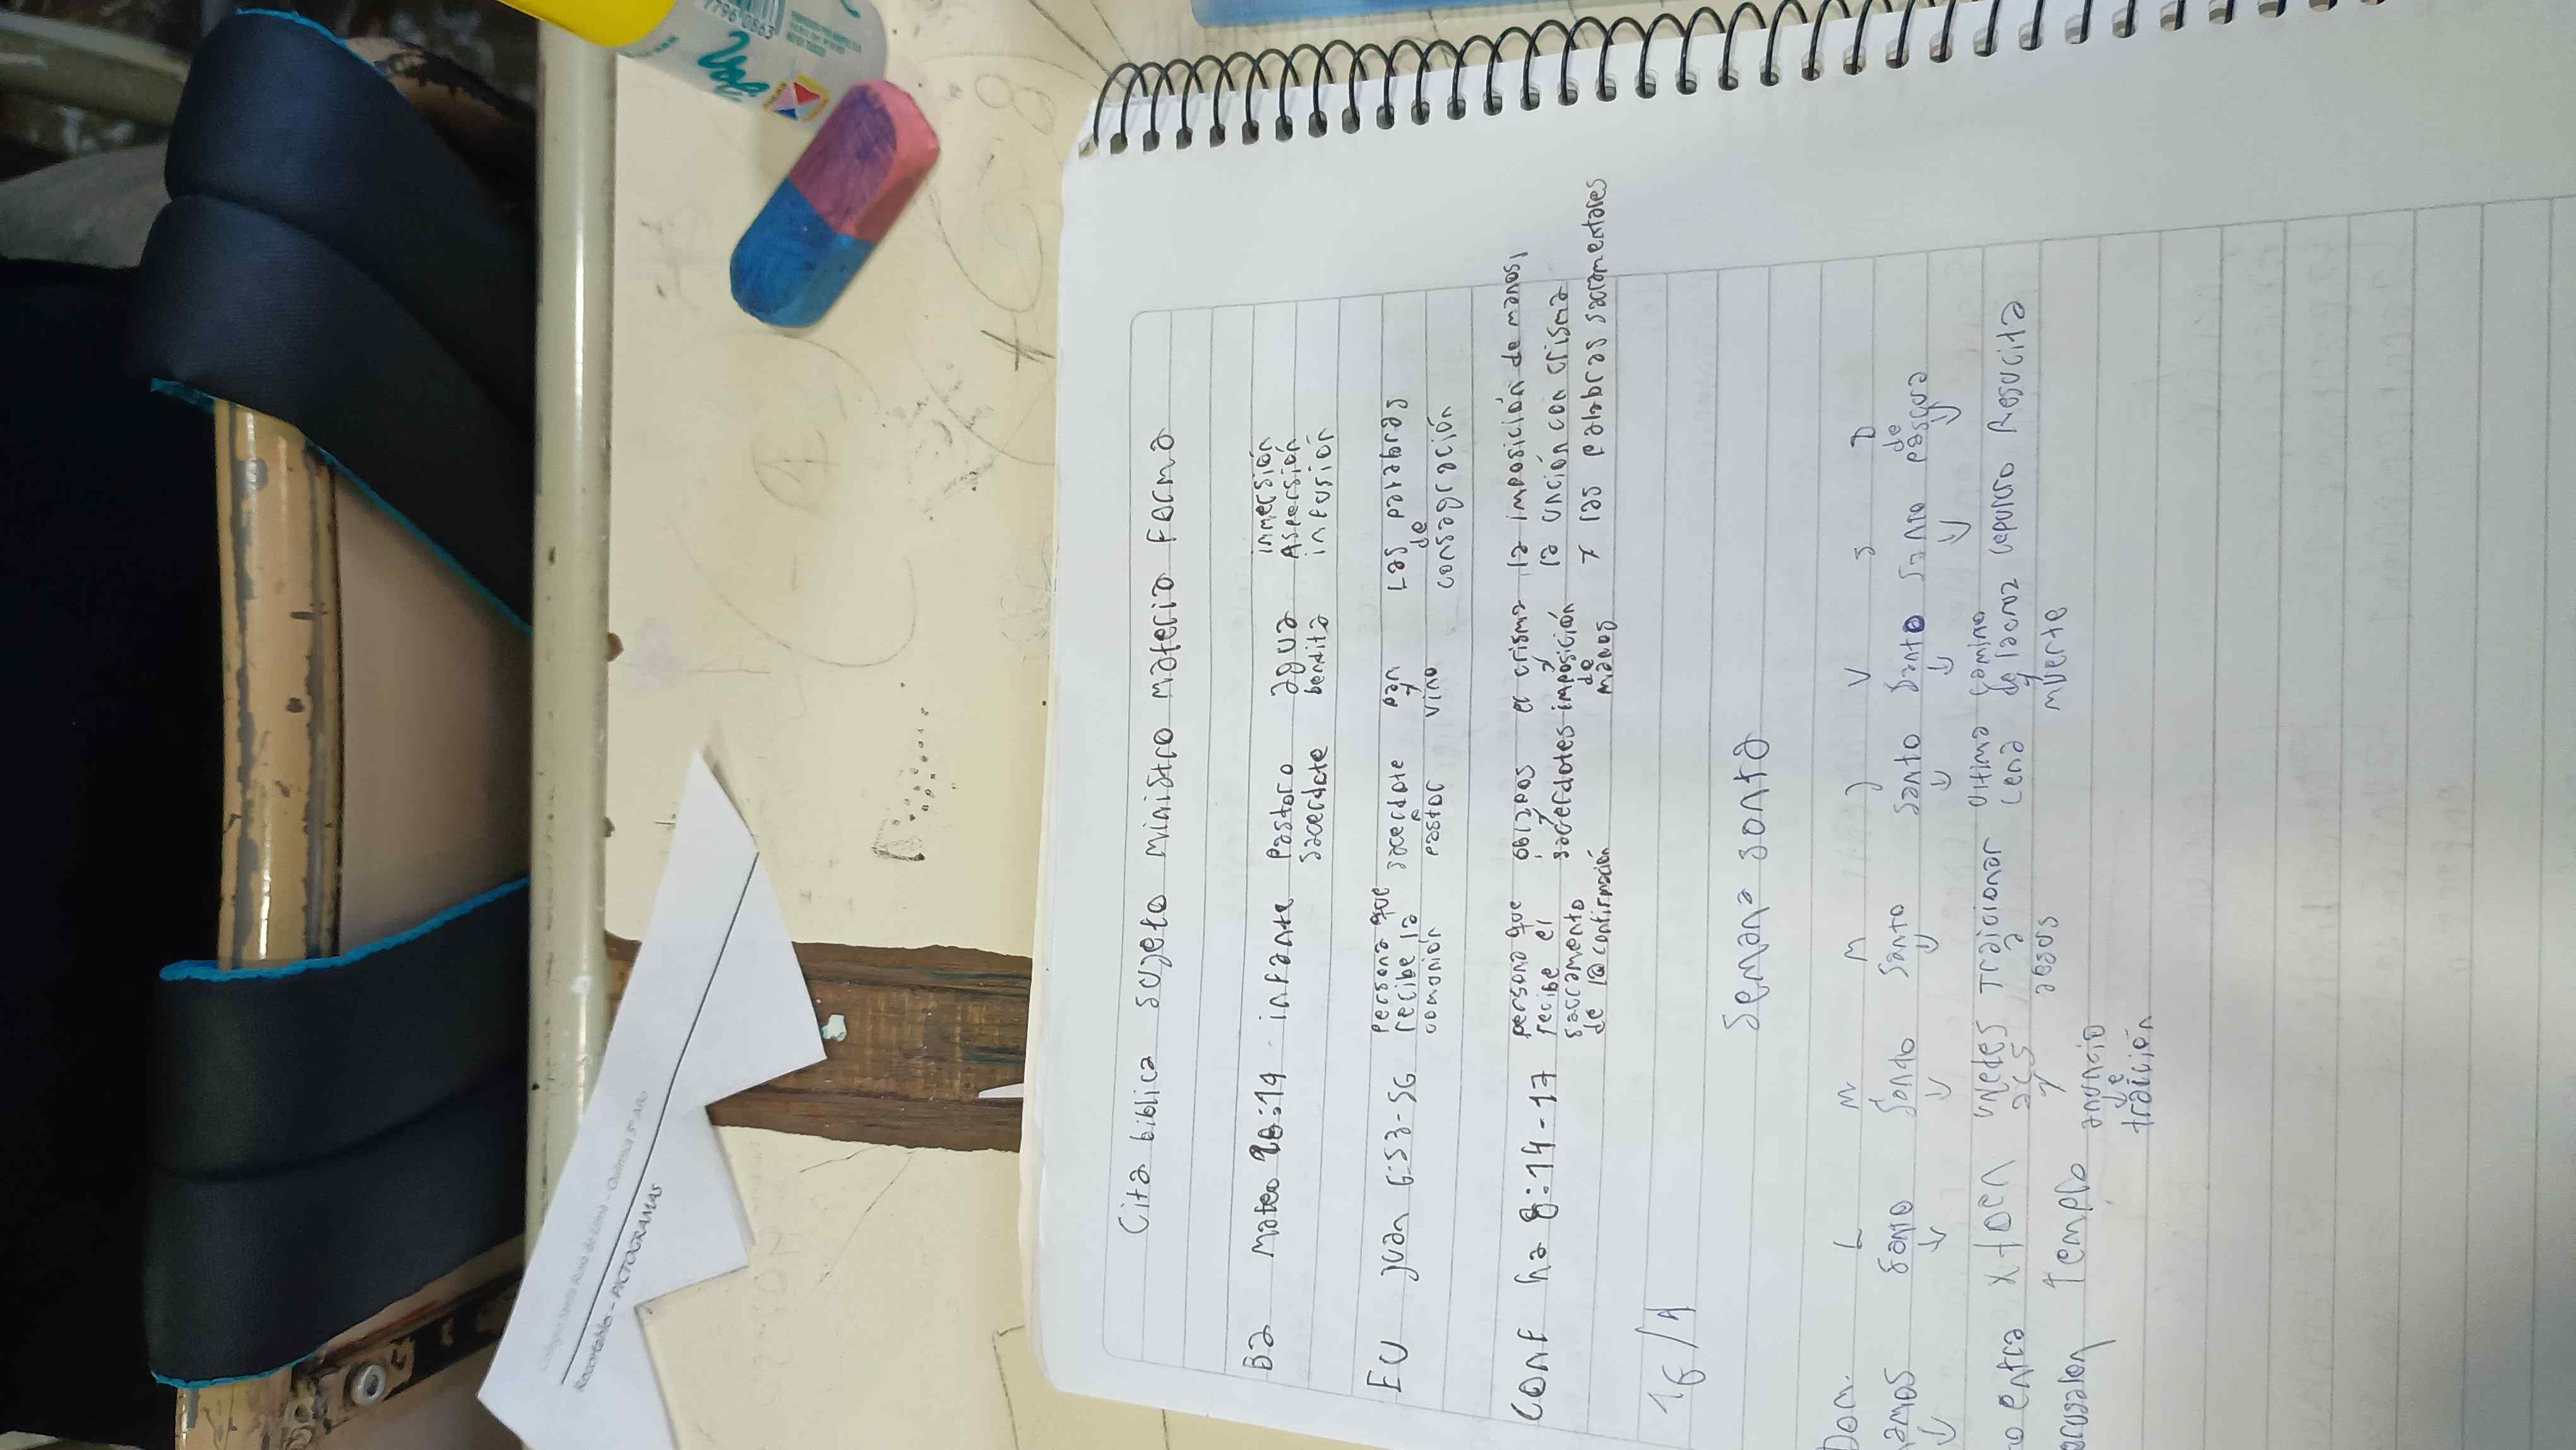 Cita biblica sujeto ministro materia Forma
Ba Mateo 28:19 infante Pastor o agua inmersión
sacerdote bendita Aspersión
infusión
EU Juan 6:53-56 Persona que sacerdote pan Las palabras
recibe la o y de
comunión Pastor vino consagración
Conf ha 8:14-17 persona que obispos el crisma la imposición de manos,
recibe el y y la unción con crisma
sacramento sacerdotes imposición y las palabras sacramentares
de la confirmación de
manos
16/4
Semana santa
Dom. L M M J V S D
amos santo santo santo santo santo santo de
pascua
entra x + Traicionar última camino sepulcro Resucita
a cena de la cruz
Jesus y
muerte
Templo anuncio
de
traición
Química 5° Año
PICTOGRAMAS
7796